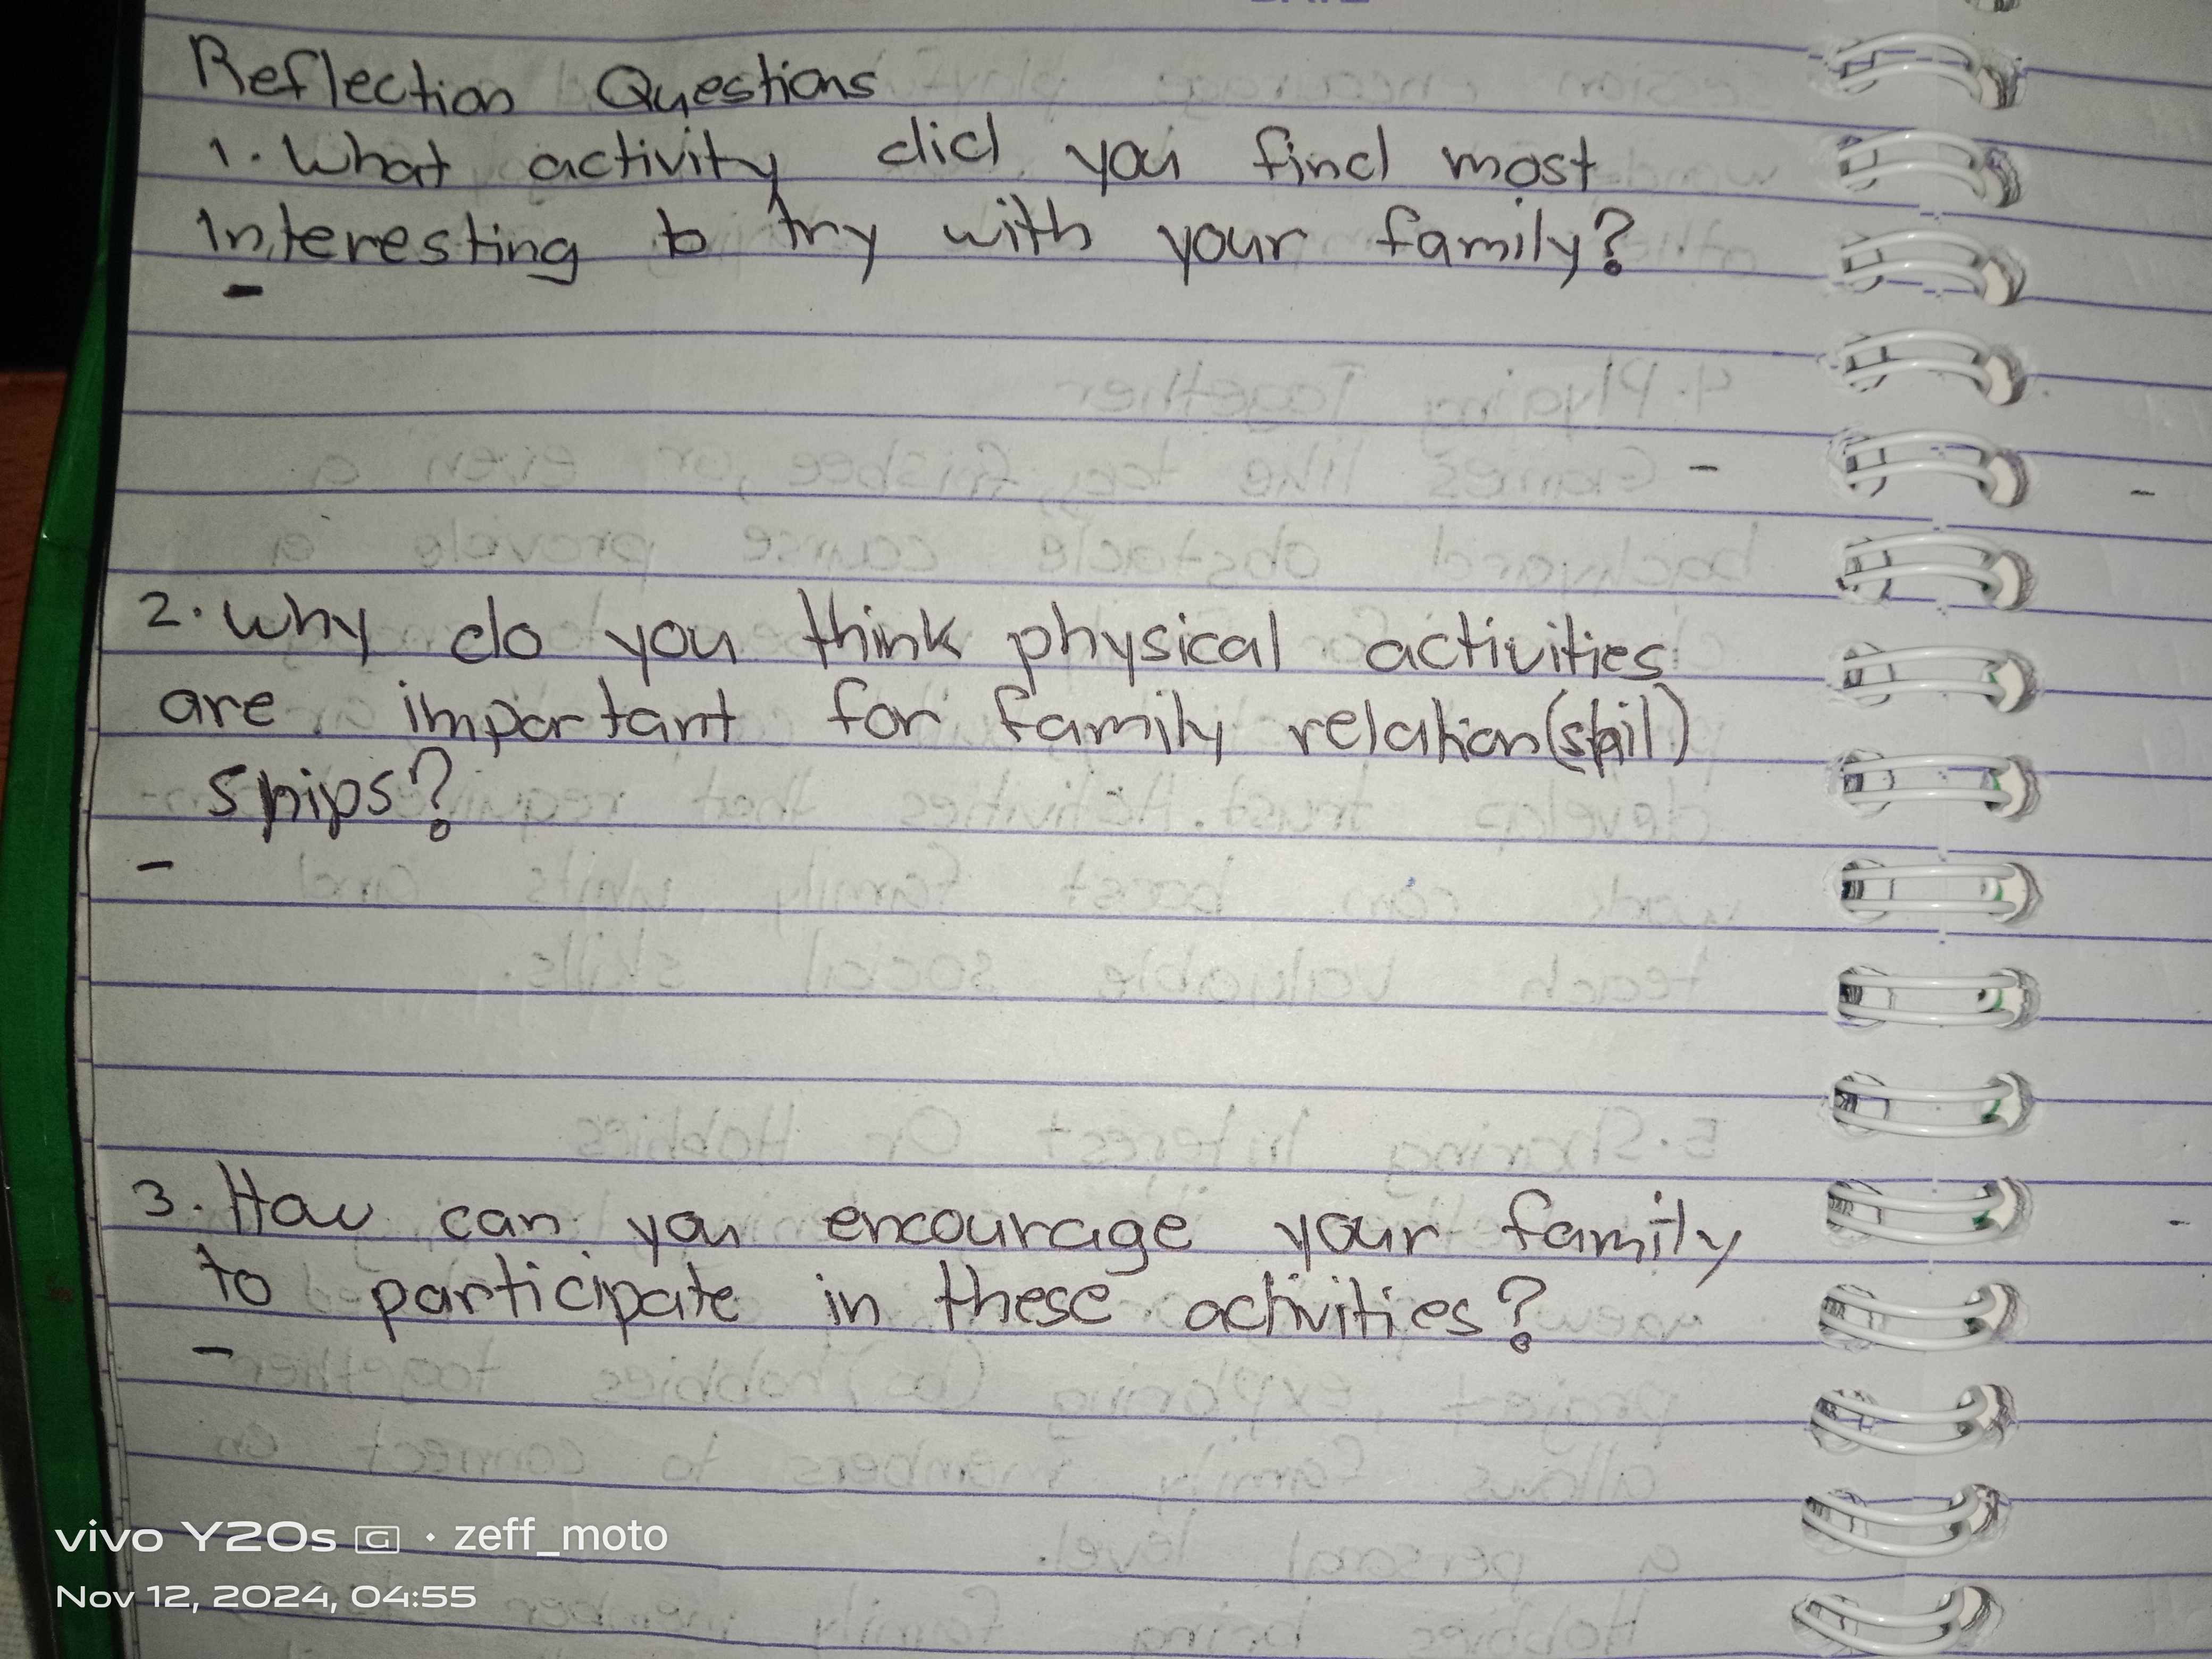 Reflection Questions
1. What activity did you find most
Interesting to try with your family?
-
2. Why do you think physical activities
are important for family relation(shil)
ships?
-
3. How can you encourage your family
to participate in these activities?
-
vivo Y20s G · zeff_moto
Nov 12, 2024, 04:55